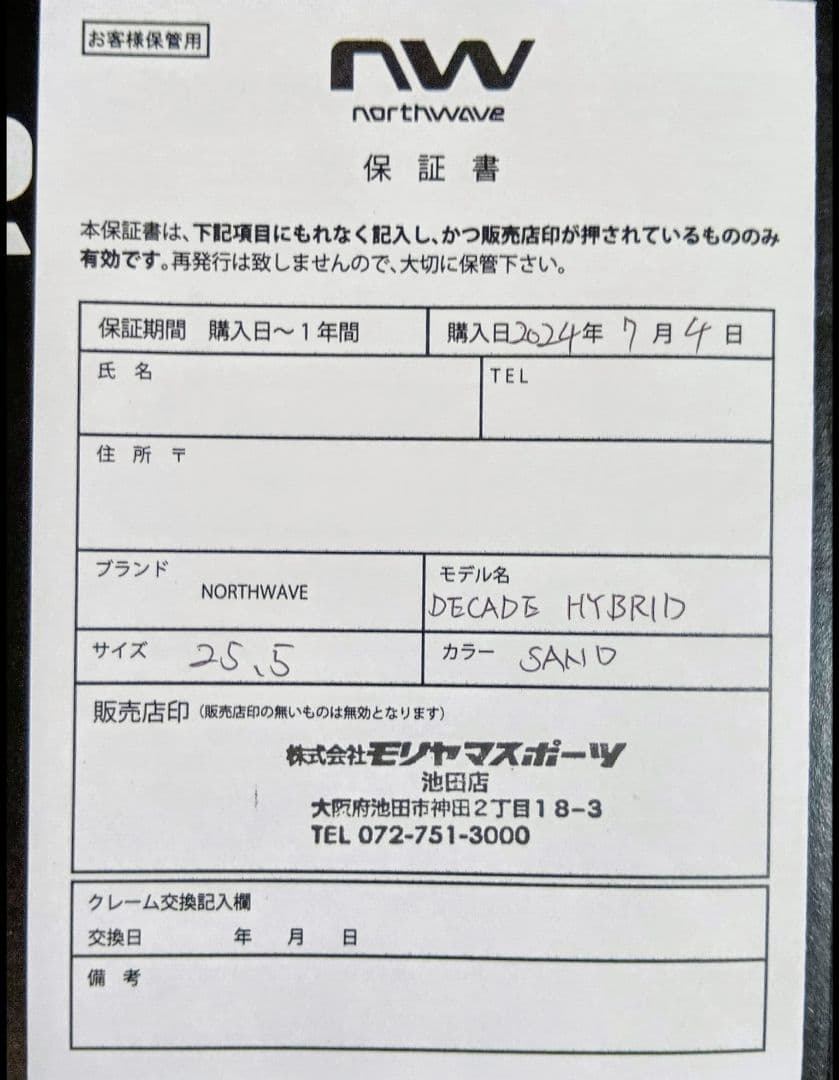 お客様保管用
nw
northwave
保証書
本保証書は、下記項目にもれなく記入し、かつ販売店印が押されているもののみ
有効です。再発行は致しませんので、大切に保管下さい。
保証期間 購入日〜1年間 購入日2024年 7月 4日
氏 名 TEL
住 所 〒
ブランド モデル名
NORTHWAVE DECADE HYBRID
サイズ 25.5 カラー SAND
販売店印（販売店印の無いものは無効となります）
株式会社モリヤマスポーツ
池田店
大阪府池田市神田2丁目18-3
TEL 072-751-3000
クレーム交換記入欄
交換日 年 月 日
備 考